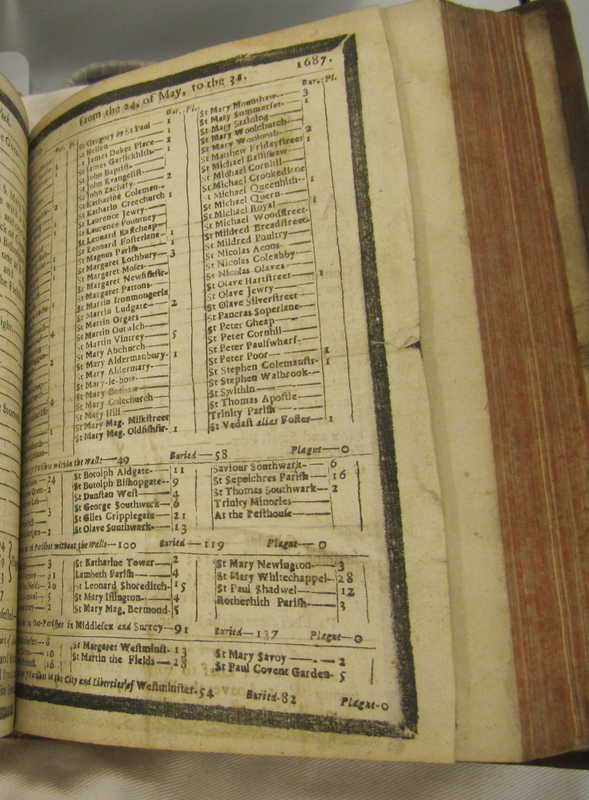 From the 24. of May, to the 31. 1687.
Bur. Pl.
St Gregory by St Paul— 1
St Hellen— 1
St James Dukes Place— 2
St James Garlickhith— 1
St John Baptist— 1
St John Evangelist—
St John Zachary— 2
St Katharine Coleman—
St Katharin Creechurch 1
St Laurence Jewry—
St Laurence Pountney
St Leonard Eastcheap
St Leonard Fosterlane—
St Magnus Parish— 1
St Margaret Lothbury— 3
St Margaret Moses—
St Margaret Newfishstr-
St Margaret Pattons—
St Martin Ironmongerla
St Martin Ludgate— 2
St Martin Orgars
St Martin Outwich—
St Martin Vintrey 5
St Mary Abchurch
St Mary Aldermanbury- 1
St Mary Aldermary-
St Mary-le-bow—
St Mary Bothaw
St Mary Colechurch
St Mary Hill
St Mary Mag. Milkstreet
St Mary Mag. Oldfishstr- 1
Bur. Pl.
St Mary Mounthaw— 3
St Mary Sommerset— 1
St Mary Staining—
St Mary Woolchurch—
St Mary Woolnoth— 2
St Matthew Fridaystreet 1
St Michael Bassishaw—
St Michael Cornhill—
St Michael Crookedlane
St Michael Queenhith— 1
St Michael Quern—
St Michael Royal— 1
St Michael Woodstreet—
St Mildred Breadstreet—
St Mildred Poultry—
St Nicolas Acons—
St Nicolas Coleabby—
St Nicolas Olaves—
St Olave Hartstreet— 1
St Olave Jewry—
St Olave Silverstreet—
St Pancras Soperlane—
St Peter Cheap—
St Peter Cornhill—
St Peter Paulswharf—
St Peter Poor— 1
St Stephen Colemanstr- 1
St Stephen Walbrook—
St Swithin—
St Thomas Apostle—
Trinity Parish—
St Vedast alias Foster— 1
Parishes within the Walls—49 Buried—58 Plague—0
St Botolph Aldgate— 11
St Botolph Bishopgate— 9
St Dunstan West— 4
St George Southwark— 6
St Giles Cripplegate— 21
St Olave Southwark— 13
Saviour Southwark— 6
St Sepulchres Parish— 16
St Thomas Southwark— 2
Trinity Minories—
At the Pesthouse—
Parishes without the Walls—100 Buried—119 Plague—0
St Katharine Tower— 2
Lambeth Parish— 4
St Leonard Shoreditch— 15
St Mary Islington— 4
St Mary Mag. Bermond. 5
St Mary Newington— 3
St Mary Whitechappel— 28
St Paul Shadwel— 12
Rotherhith Parish— 3
Out-Parishes in Middlesex and Surrey—91 Buried—137 Plague—0
St Margaret Westminst- 13
St Martin the Fields— 28
St Mary Savoy— 2
St Paul Covent Garden— 5
Parishes in the City and Liberties of Westminster-54 Buried-82 Plague-0